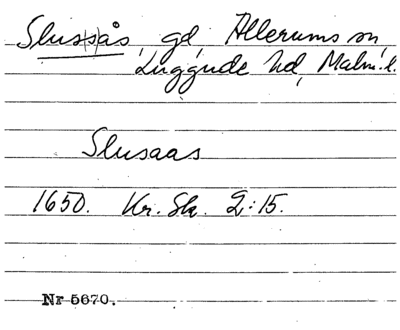 Slussås, gd Allerums sn
Luggude hd, Malm. l.
Slusaas
1650. Kr. Sk. 2:15.
Nr 5670.